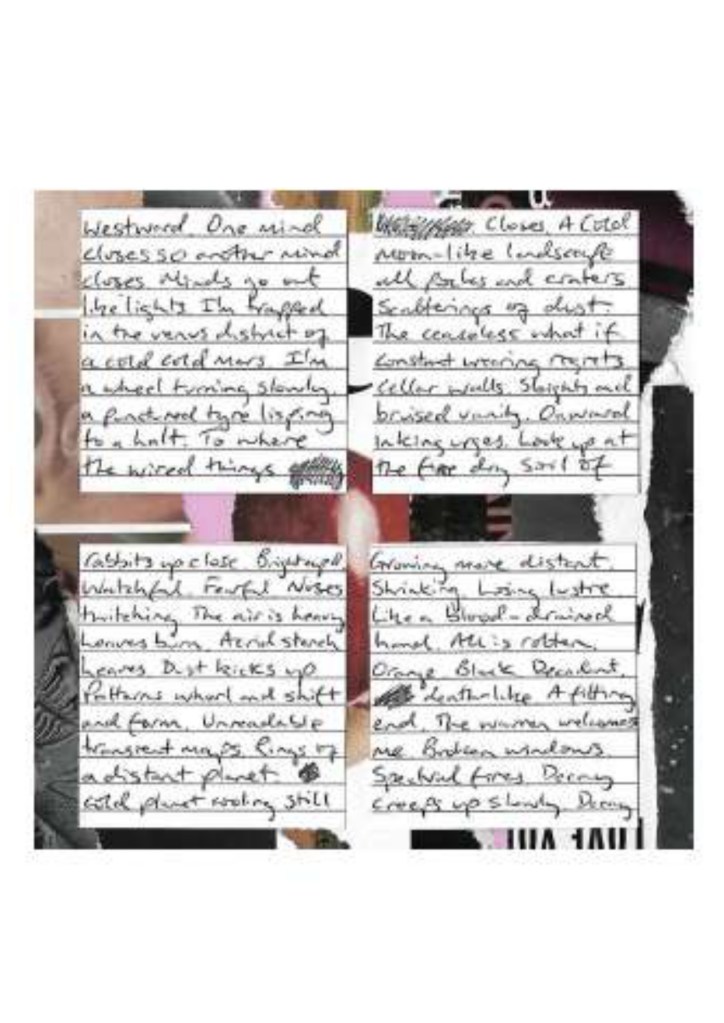 Westward. One mind
closes so another mind
closes Minds go out
like lights I'm trapped
in the venus district of
a cold cold Mars I'm
a wheel turning slowly,
a punctured tyre lisping
to a halt. To where
the wired things
Closes. A Cold
Moon-like landscape
all and craters
Scatterings of dust.
The ceaseless what if
Constant wearing regrets
Cellar walls. Sleights and
bruised vanity. Onward
Inking urges. Look up at
the fine dry soil of
rabbits up close Brighteyed.
Watchful. Fearful Noses
twitching The air is heavy
Leaves burn. Acrid stench
heaves Dust kicks up
Patterns whorl and shift
and form. Unreadable
transient maps. Rings of
a distant planet
cold planet cooling still
Growing more distant.
Shrinking. Losing lustre
Like a blood-drained
hand. All is rotten.
Orange. Black Decadent.
deathlike A fitting
end. The warren welcomes
me Broken windows.
Spectral fires. Decay
creeps up slowly. Decay